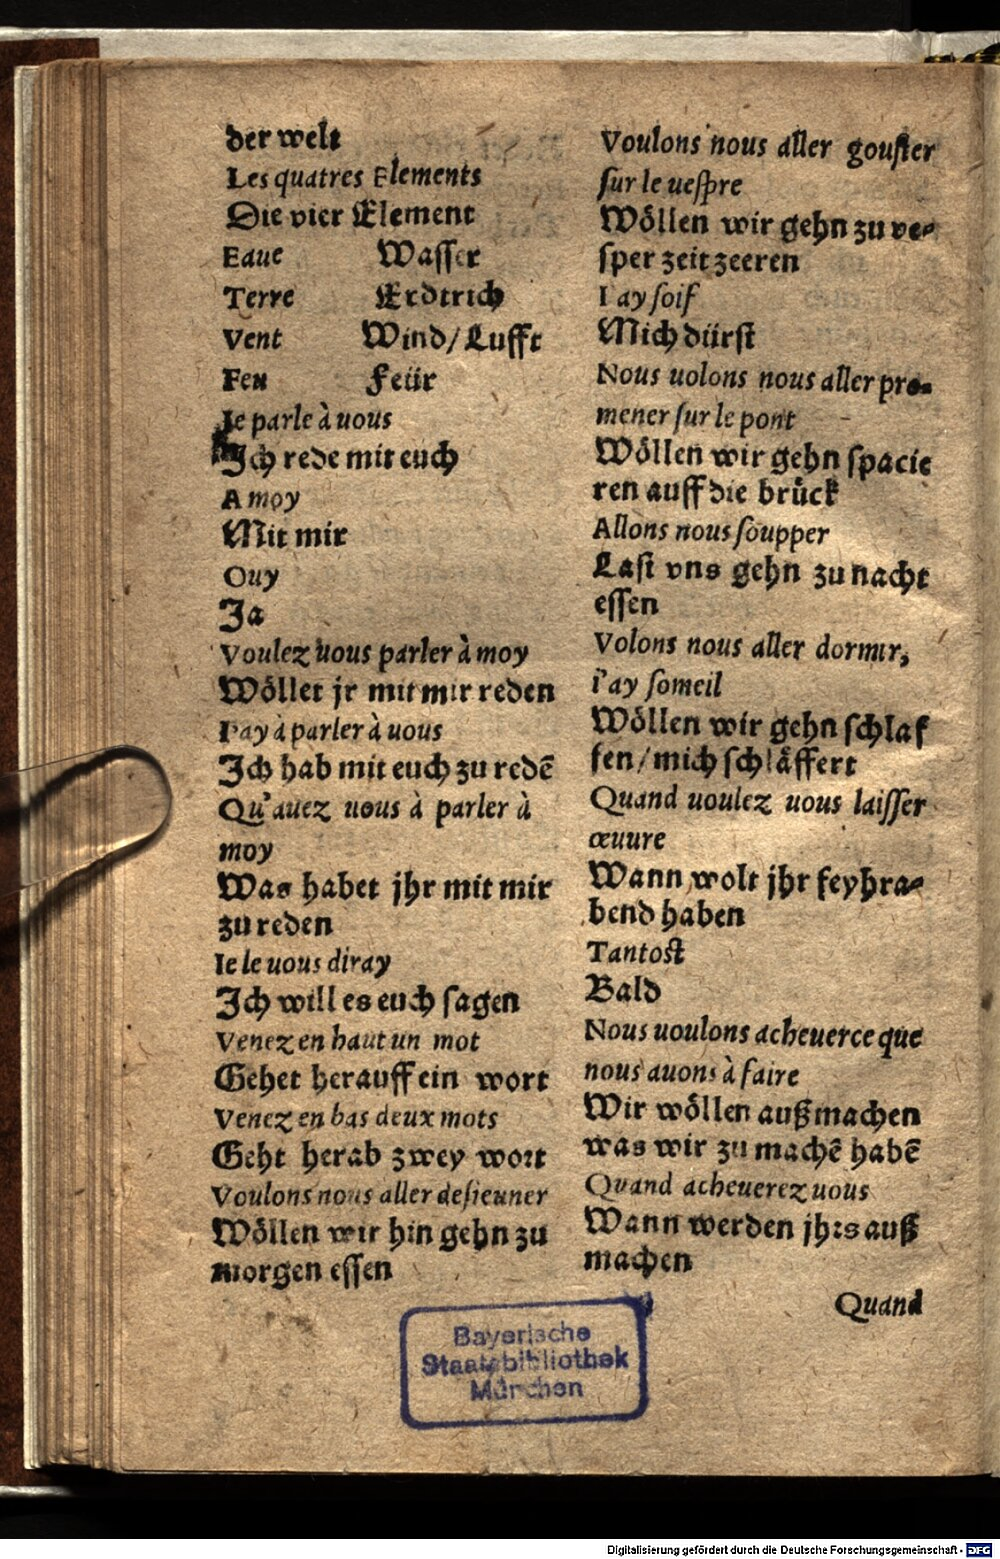 der welt
Les quatres Elements
Die vier Element
Eaue Wasser
Terre Erdtrich
Vent Wind/Lufft
Feu Feür
Ie parle à uous
Ich rede mit euch
A moy
Mit mir
Ouy
Ja
Voulez uous parler à moy
Wöllet jr mit mir reden
I'ay à parler à uous
Ich hab mit euch zu redē
Qu'auez uous à parler à
moy
Was habet jhr mit mir
zu reden
Ie le uous diray
Ich will es euch sagen
Venez en haut un mot
Gehet herauff ein wort
Venez en bas deux mots
Geht herab zwey wort
Voulons nous aller desieuner
Wöllen wir hin gehn zu
morgen essen
Voulons nous aller gouster
sur le uespre
Wöllen wir gehn zu ve-
sper zeit zeeren
I ay soif
Mich dürst
Nous uolons nous aller pro-
mener sur le pont
Wöllen wir gehn spacie
ren auff die brück
Allons nous soupper
Last vns gehn zu nacht
essen
Volons nous aller dormir,
i'ay someil
Wöllen wir gehn schlaf
fen/mich schläffert
Quand uoulez uous laisser
œuure
Wann wolt jhr feyhra-
bend haben
Tantost
Bald
Nous uoulons acheuer ce que
nous auons à faire
Wir wöllen außmachen
was wir zu machē habē
Quand acheuerez uous
Wann werden jhrs auß
machen
Quand
Bayerische
Staatsbibliothek
München
Digitalisierung gefördert durch die Deutsche Forschungsgemeinschaft - DFG